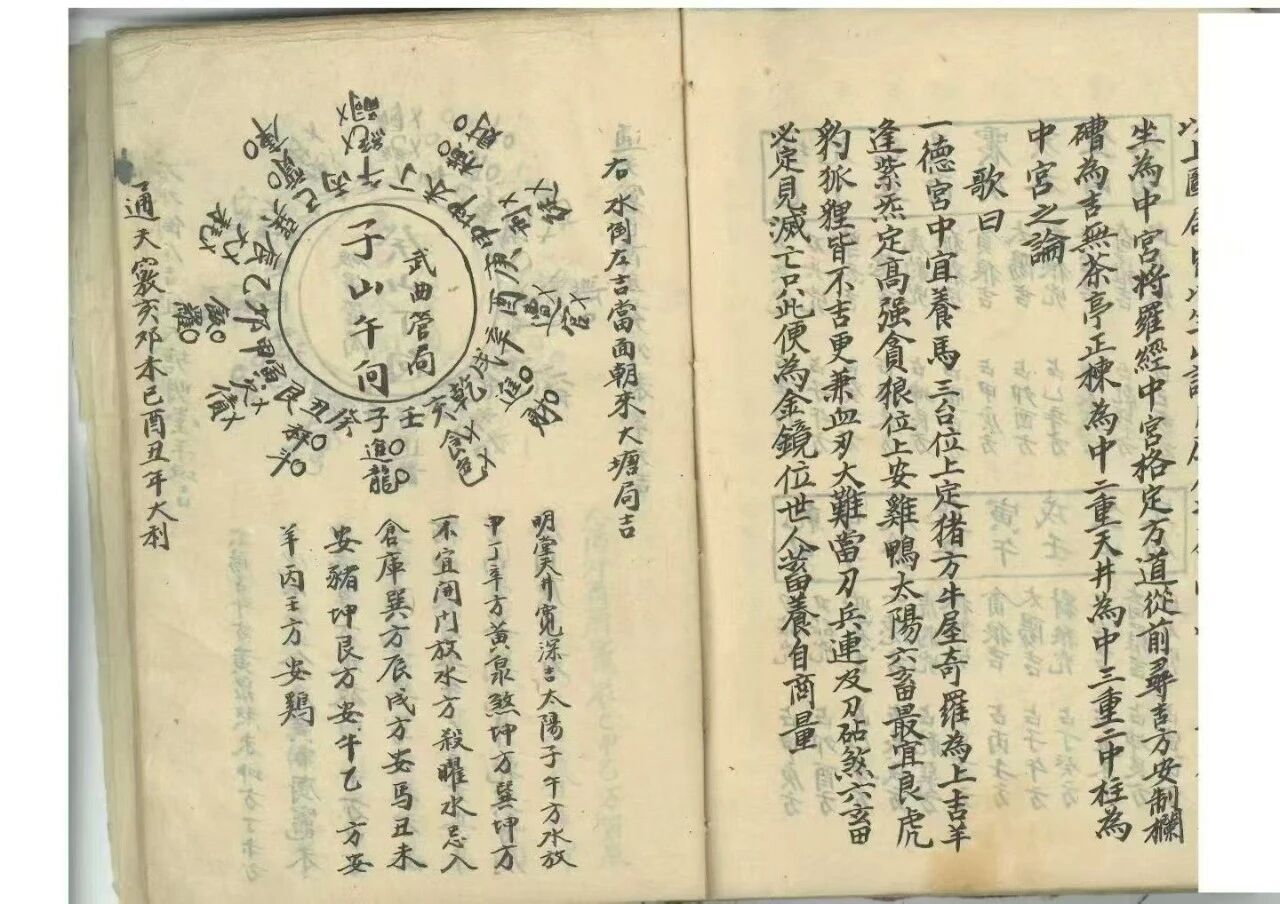 坐為中宮將羅經中宮格定方道從前尋吉方安制欄
磄為吉無茶亭正棟為中二重天井為中三重二中柱為
中宮之論
歌曰
一德宮中宜養馬三台位上定猪方牛屋奇羅為上吉羊
逢紫炁定高强貪狼位上安雞鴨太陽六畜最宜良虎
豹狐狸皆不吉更兼血刃大難當刀兵連及刀砧煞六畜
必定見滅亡只此便為金鏡位世人蓄養自商量
右水倒左吉當面朝來大塘局吉
武曲管局
子山午向
午丙巳巽辰乙卯甲寅艮丑癸子壬亥乾戌辛酉庚申坤未丁
進
龍
進
財
明堂天井寬深吉太陽子午方水放
甲丁辛方黃泉煞坤方巽坤方
不宜開門放水方殺曜水忌入
倉庫巽方辰戌方安馬丑未
安豬坤艮方安牛乙方安
羊丙壬方安鷄
通天竅亥卯未巳酉丑年大利